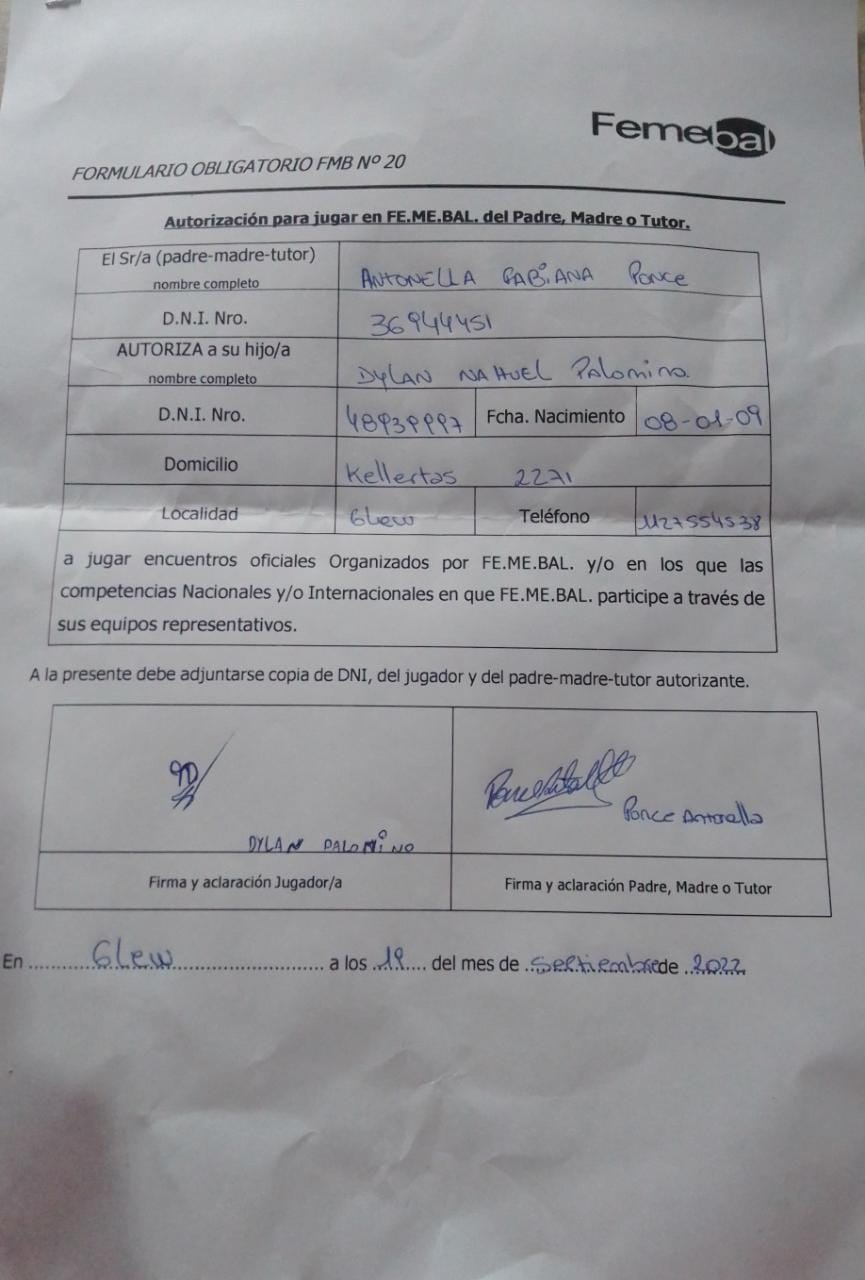 Femebal
FORMULARIO OBLIGATORIO FMB Nº 20
Autorización para jugar en FE.ME.BAL. del Padre, Madre o Tutor.
El Sr/a (padre-madre-tutor)
nombre completo
ANTONELLA GABIANA PONCE
D.N.I. Nro.
36944451
AUTORIZA a su hijo/a
nombre completo
DYLAN NAHUEL Palomino.
D.N.I. Nro.
48939997
Fcha. Nacimiento
08-01-09
Domicilio
Kellertas 2271
Localidad
Glew
Teléfono
1127554538
a jugar encuentros oficiales Organizados por FE.ME.BAL. y/o en los que las
competencias Nacionales y/o Internacionales en que FE.ME.BAL. participe a través de
sus equipos representativos.
A la presente debe adjuntarse copia de DNI, del jugador y del padre-madre-tutor autorizante.
DYLAN PALOMINO
Ponce Antonella
Firma y aclaración Jugador/a
Firma y aclaración Padre, Madre o Tutor
En Glew a los 19 del mes de Septiembre de 2022